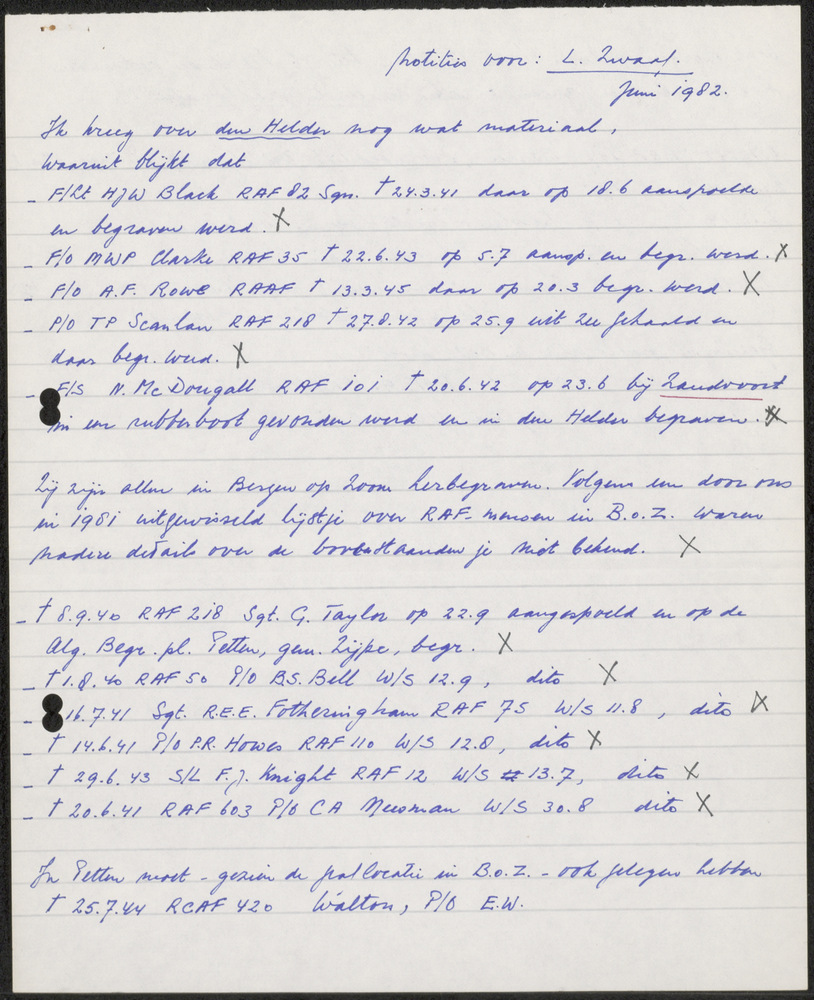 Notities voor: L. Zwaaf.
Juni 1982.
Ik kreeg over den Helder nog wat materiaal,
waaruit blijkt dat
- F/Lt HJW Black RAF 82 Sqn. † 24.3.41 daar op 18.6 aanspoelde
en begraven werd. X
- F/O MWP Clarke RAF 35 † 22.6.43 op 5.7 aansp. en begr. werd. X
- F/O A.F. Rowe RAAF † 13.3.45 daar op 20.3 begr. werd. X
- P/O TP Scanlan RAF 218 † 27.8.42 op 25.9 uit zee gehaald en
daar begr. werd. X
- F/S N. McDougall RAF 101 † 20.6.42 op 23.6 bij Zandvoort
in een rubberboot gevonden werd en in den Helder begraven. X
Zij zijn allen in Bergen op Zoom herbegraven. Volgens een door ons
in 1981 uitgewisseld lijstje over RAF-mensen in B.o.Z. waren
nadere details over de bovenstaanden je niet bekend. X
- † 8.9.40 RAF 218 Sgt. G. Taylor op 22.9 aangespoeld en op de
Alg. Begr. pl. Petten, gem. Zijpe, begr. X
- † 1.8.40 RAF 50 P/O B.S. Bell W/S 12.9, dito X
- 16.7.41 Sgt. R.E.E. Fotheringham RAF 75 W/S 11.8, dito X
- † 14.6.41 P/O P.R. Howes RAF 110 W/S 12.8, dito X
- † 29.6.43 S/L F.J. Knight RAF 12 W/S 13.7, dito X
- † 20.6.41 RAF 603 P/O CA Newman W/S 30.8 dito X
In Petten moet - gezien de graflocatie in B.o.Z. - ook gelegen hebben
† 25.7.44 RCAF 420 Walton, P/O E.W.